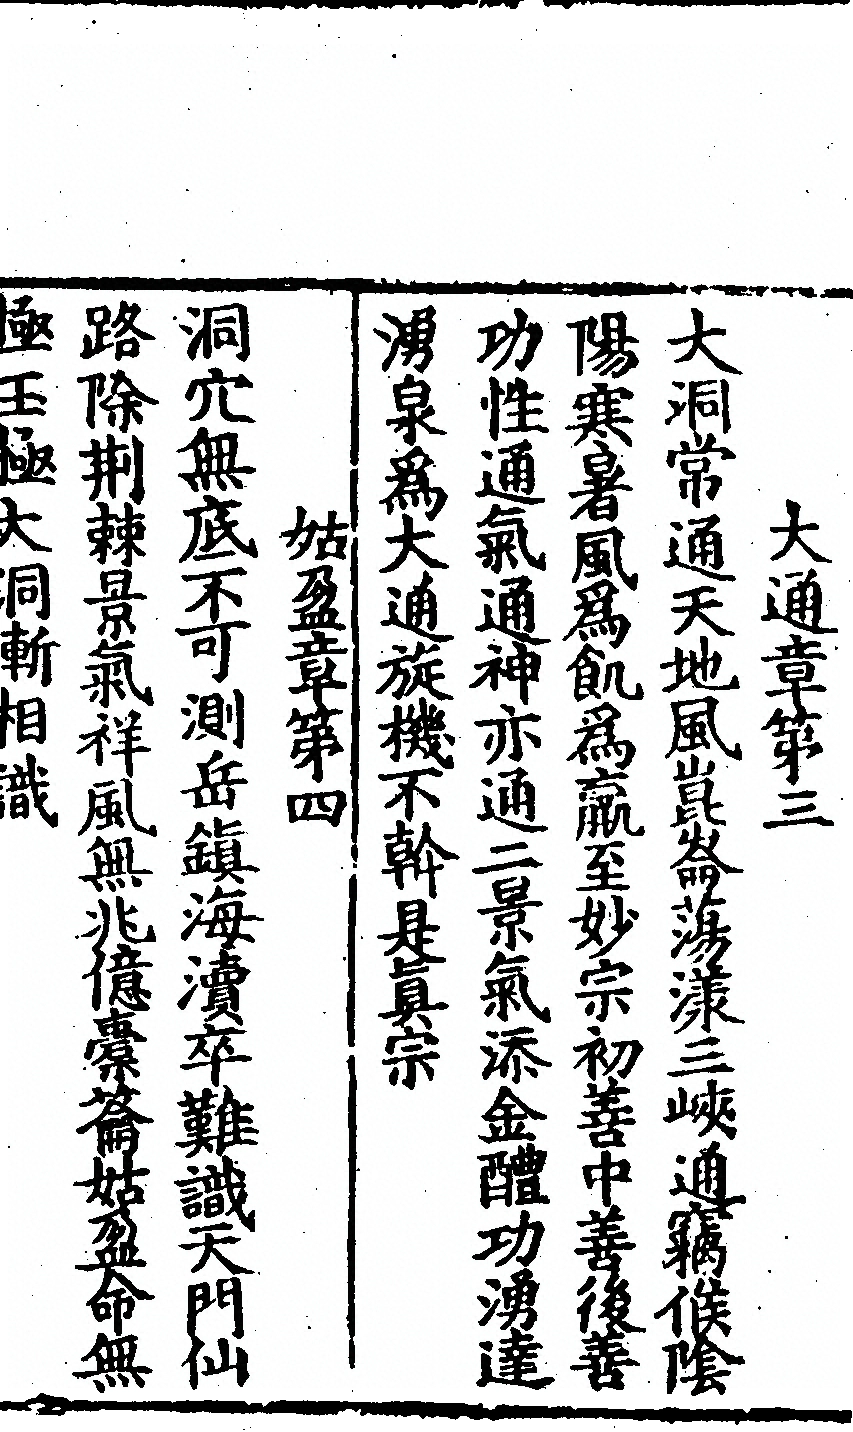 大通章第三
大洞常通天地風崑崙蕩漾三峽通竊候陰
陽寒暑風爲飢爲羸至妙宗初善中善後善
功性通氣通神亦通二景氣添金醴功湧達
湧泉爲大通旋機不斡是眞宗
姑盈章第四
洞穴無底不可測岳鎮海瀆卒難識天門仙
路除荆棘景氣祥風無兆億槖蘥姑盈命無
極王極大洞斬相識